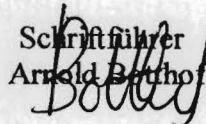 Schriftführer
Arnold Botthof